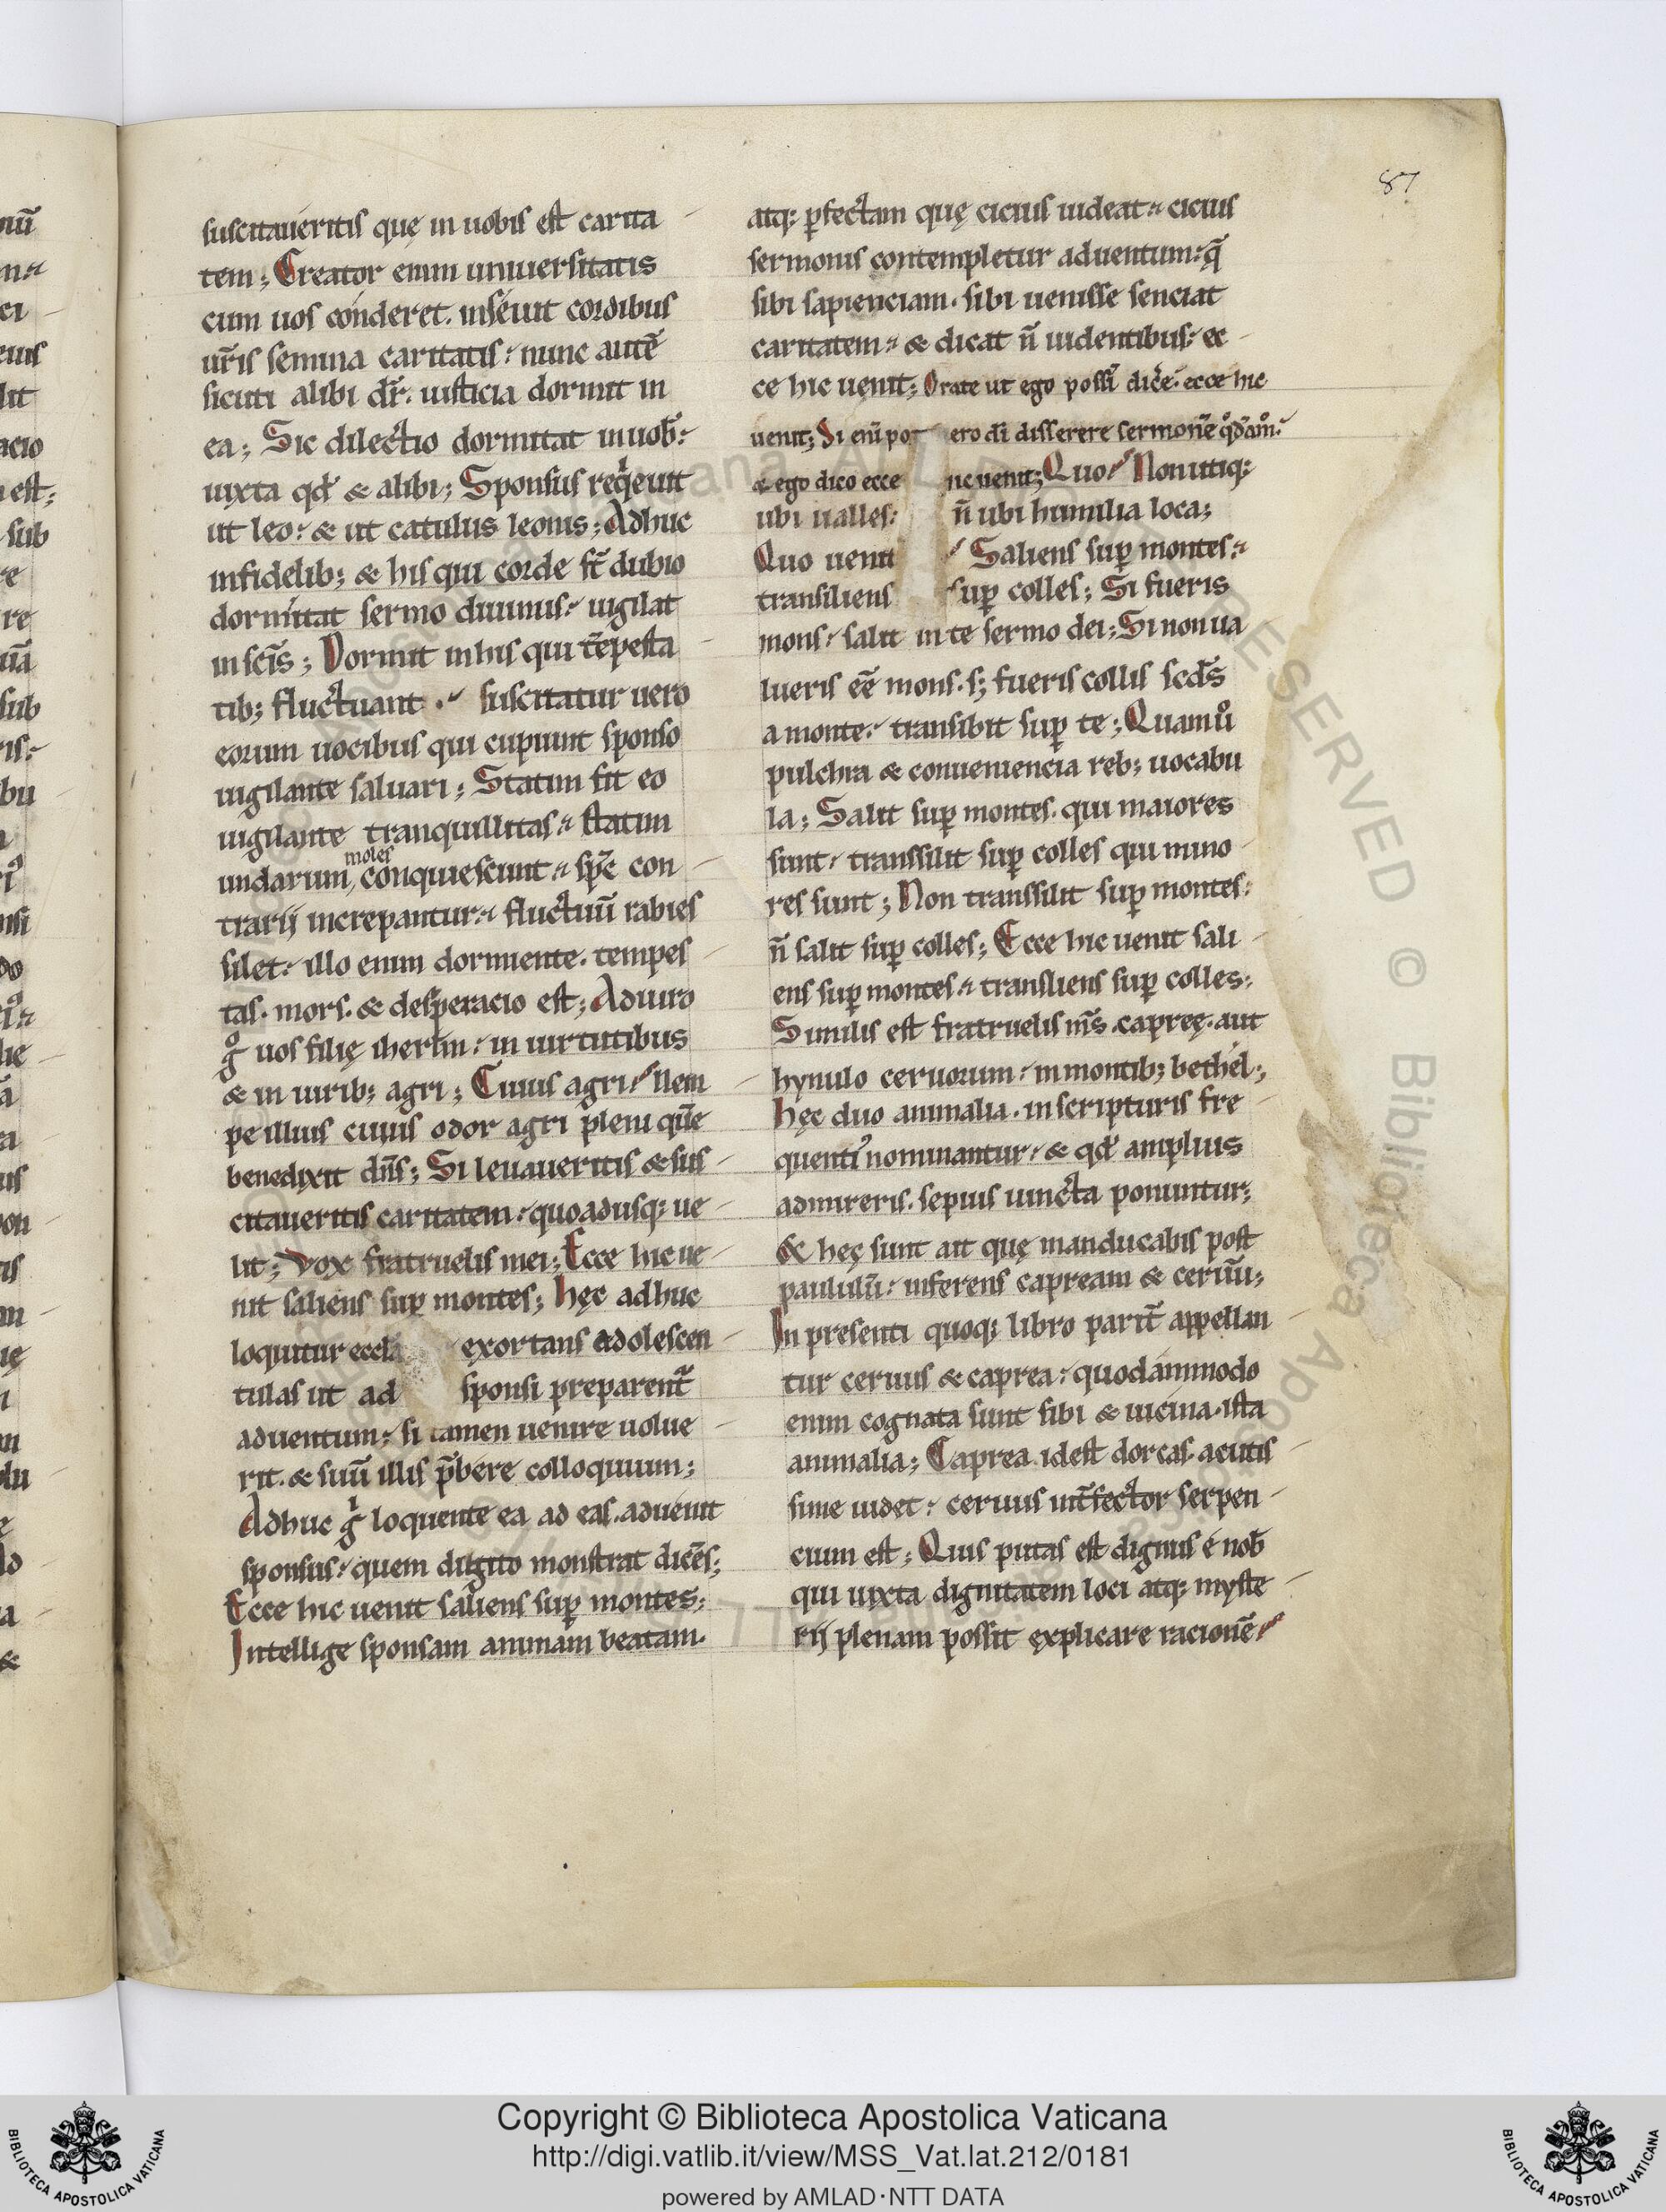 87
suscitaueritis quę in uobis est carita
tem; Creator enim uniuersitatis
cum uos conderet. inseuit cordibus
ur̄is semina caritatis: nunc autē
sicuti alibi dr̄. iusticia dormit in
ea; Sic dilectio dormitat in uob̄:
iuxta qd́ & alibi; Sponsus reqͥeuit
ut leo: & ut catulus leonis; Adhuc
infidelib; & his qui corde st̄ dubio
dormitat sermo diuinus: uigilat
in scīs; Dormit in his qui tēpesta
tib; fluctuant. suscitatur uero
eorum uocibus qui cupiunt sponso
uigilante saluari; Statim fit eo
uigilante tranquillitas: statim
undarum moles conquiescunt: spc̄ con
trarij increpantur: fluctuū rabies
silet: illo enim dormiente. tempes
tas. mors. & desperacio est; Adiuro
gͦ uos filię iherlm̄: in uirtutibus
& in uirib; agri; Cuius agri: Nem
pe illius cuius odor agri pleni quē
benedixit dn̄s; Si leuaueritis & sus
citaueritis caritatem: quoadusq; ue
lit; Vox fratruelis mei; Ecce hic ue
nit saliens suꝑ montes; hęc adhuc
loquitur eccla exortans adolescen
tulas ut ad sponsi preparent᷑
aduentum: si tamen uenire uolue
rit. & suū illis p̄bere colloquium;
Adhuc gͥ loquente ea ad eas. aduenit
sponsus: quem digito monstrat dicēs;
Ecce hic uenit saliens suꝑ montes;
Intellige sponsam animam beatam.
atq; ꝑfectam quę cicius uideat: cicius
sermonis contempletur aduentum: q̄
sibi sapienciam. sibi uenisse senciat
caritatem: & dicat n̄ uidentibus: ec
ce hic uenit; Orate ut ego possī dicere. ecce hic
uenit; Si enī pot ero dī disserere sermonē qͦdāmͦ:
& ego dico ecce hic uenit; Quo: Non utiq;
ubi ualles: n̄ ubi humilia loca;
Quo uenit: Saliens suꝑ montes:
transiliens suꝑ colles; Si fueris
mons: salit in te sermo dei; Si non ua
lueris eē mons. s; fueris collis scd̄s
a monte: transibit suꝑ te; Quam uͦ
pulchra & conueniencia reb; uocabu
la; Salit suꝑ montes. qui maiores
sunt: transsilit suꝑ colles qui mino
res sunt; Non transsilit suꝑ montes:
n̄ salit suꝑ colles; Ecce hic uenit sali
ens suꝑ montes: transliens suꝑ colles:
Similis est fratruelis ms̄. capreę. aut
hynulo ceruorum: in montib; bethel;
hęc duo animalia. in scripturis fre
quentiꝰ nominantur: & qd́ amplius
admireris. sepius iuncta ponuntur;
& hęc sunt ait quę manducabis post
paululū: inferens capream & ceruū;
In presenti quoq; libro parit̄ appellan
tur ceruus & caprea: quodammodo
enim cognata sunt sibi & uicina. ista
animalia; Caprea. idest dorcas. acutis
sime uidet: ceruus int̄fector serpen
cium est; Quis putas est dignus é nob̄
qui iuxta dignitatem loci atq; myste
rij plenam possit ęxplicare racionē:
Copyright © Biblioteca Apostolica Vaticana
http://digi.vatlib.it/view/MSS_Vat.lat.212/0181
powered by AMLAD·NTT DATA
BIBLIOTECA APOSTOLICA VATICANA
BIBLIOTECA APOSTOLICA VATICANA